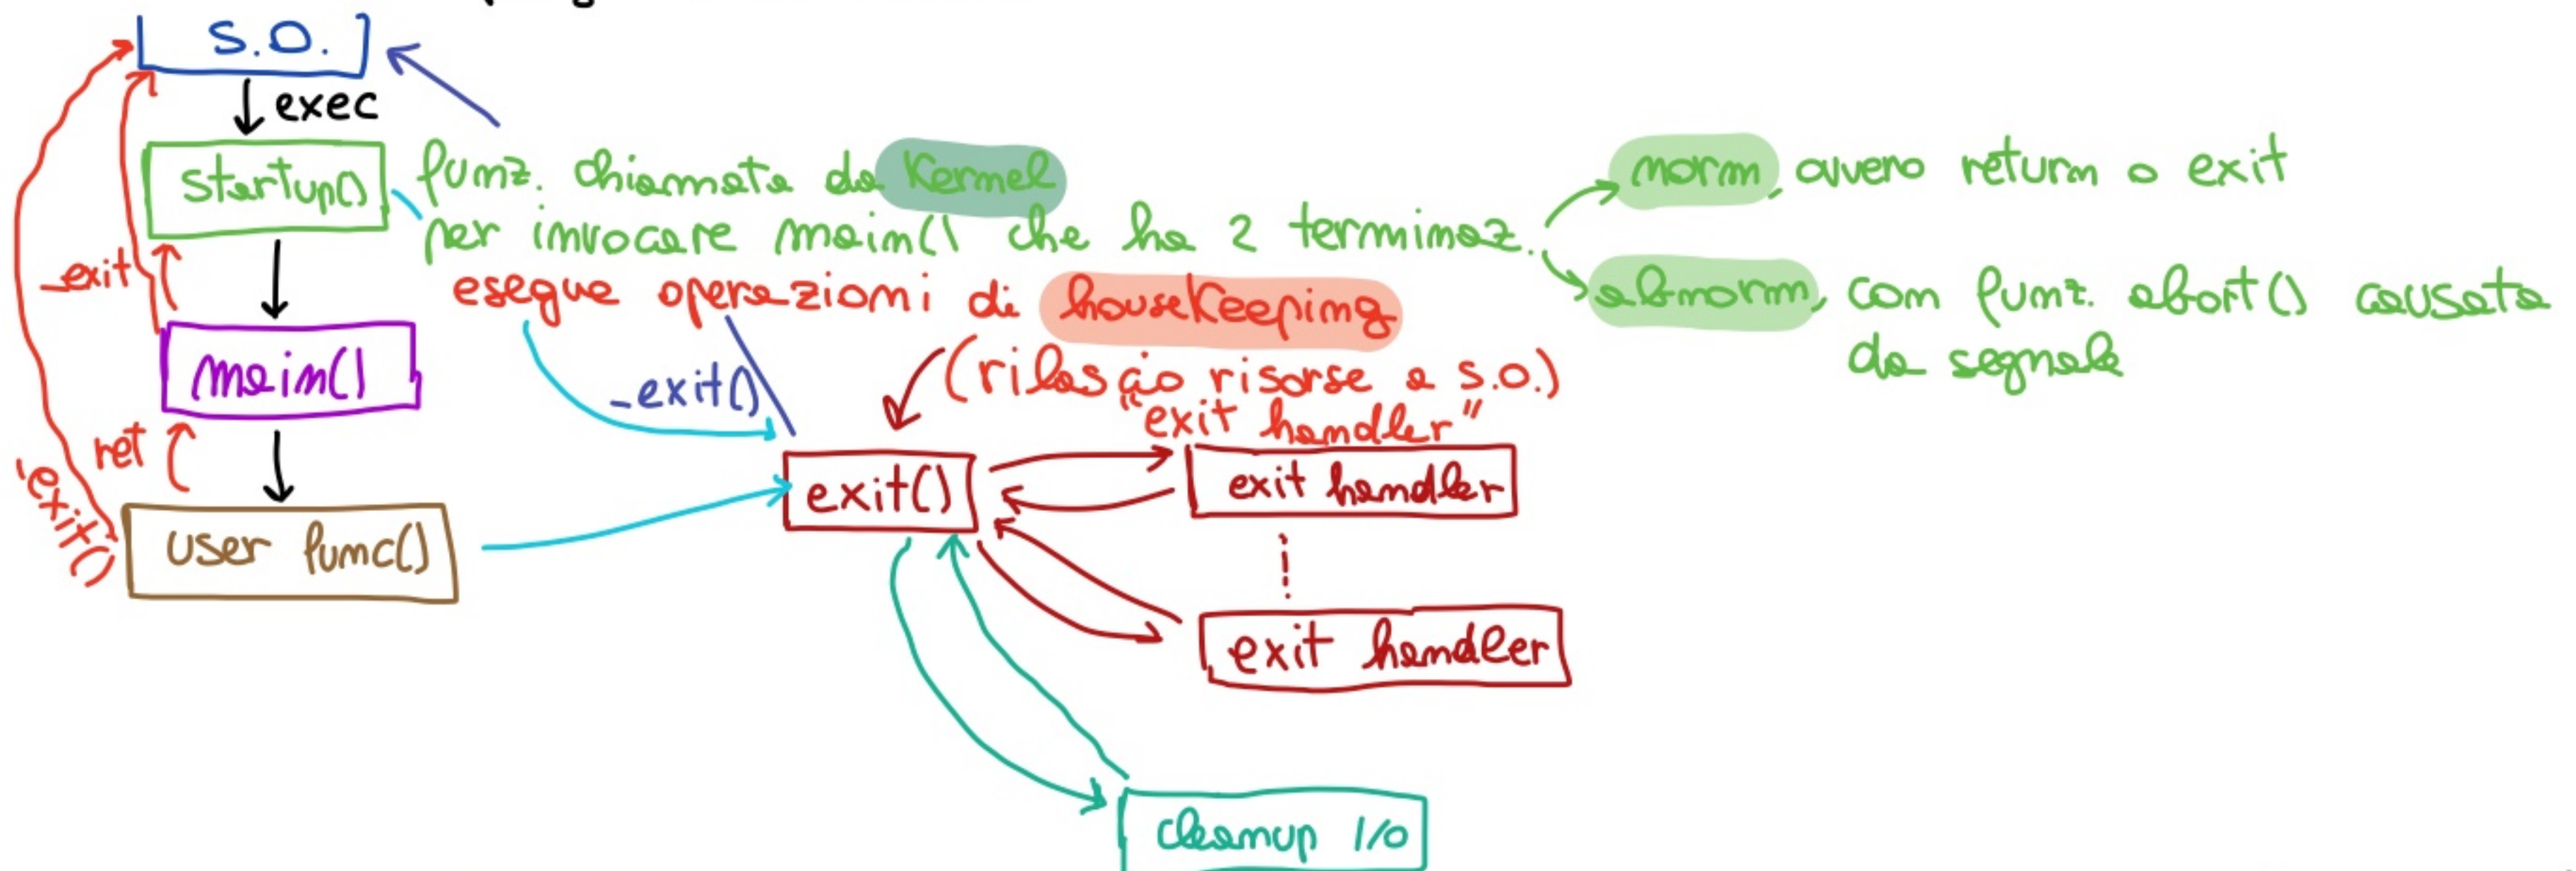 S.O.
exec
startup()
funz. chiamata da Kernel
per invocare main() che ha 2 terminaz.
norm, ovvero return o exit
abnorm, con funz. abort() causata
da segnale
esegue operazioni di housekeeping
(rilascio risorse a S.O.)
"exit handler"
_exit
main()
_exit()
ret
_exit()
user func()
exit()
exit handler
exit handler
cleanup I/O